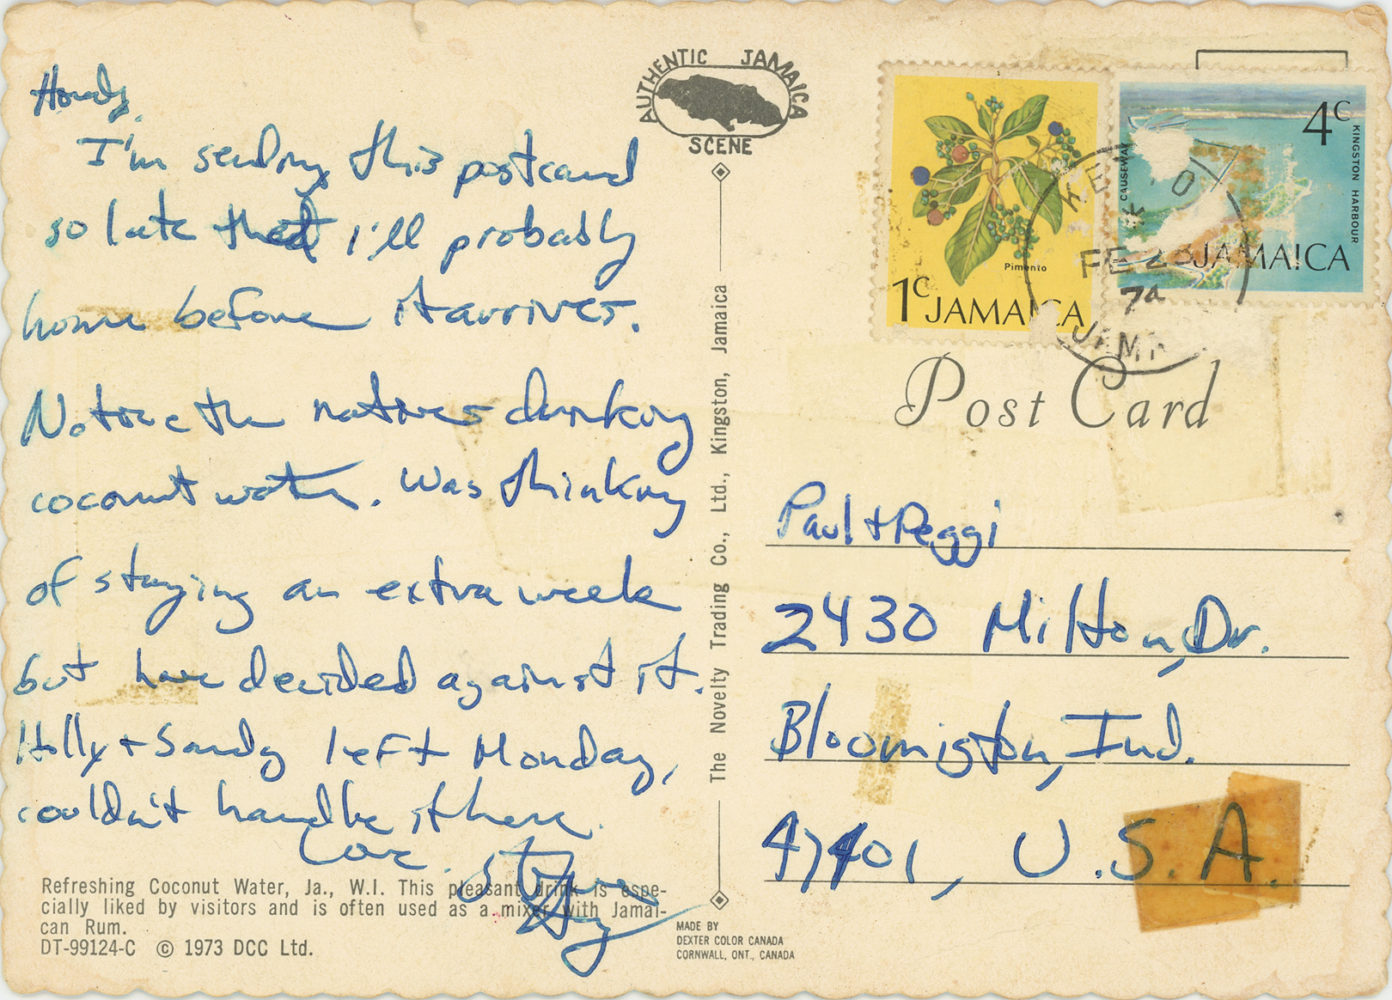 Howdy,
I'm sending this postcard
so late that I'll probably
home before it arrives.
Notice the natives drinking
coconut water. Was thinking
of staying an extra week
but have decided against it.
Holly + Sandy left Monday,
couldn't handle it here.
Love
Refreshing Coconut Water, Ja., W.I. This pleasant drink is espe-
cially liked by visitors and is often used as a mixer with Jamai-
can Rum.
DT-99124-C © 1973 DCC Ltd.
AUTHENTIC JAMAICA
SCENE
The Novelty Trading Co., Ltd., Kingston, Jamaica
MADE BY
DEXTER COLOR CANADA
CORNWALL, ONT., CANADA
Pimento
1c JAMAICA
4c
KINGSTON HARBOUR
CAUSEWAY
JAMAICA
FE 28
74
Post Card
Paul + Peggi
2430 Milton, Dr.
Bloomigton, Ind.
47401, U.S.A.